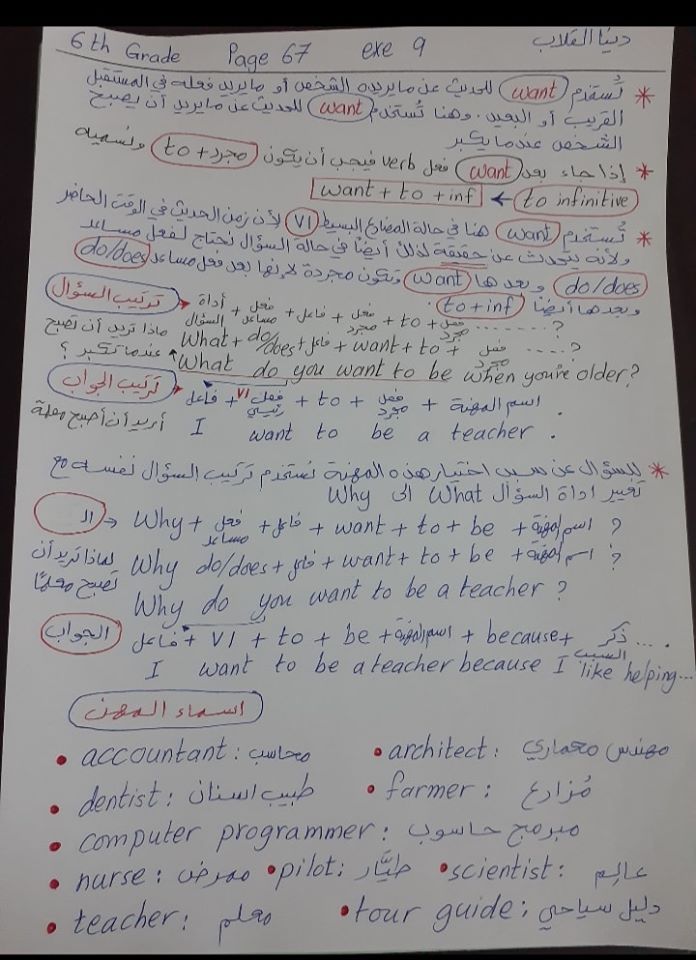 6th Grade Page 67 exe 9 دينا القلاب
* تُستخدم want للحديث عن ما يريده الشخص أو ما يريد فعله في المستقبل
القريب أو البعيد. وهنا تُستخدم want للحديث عن ما يريد أن يصبح
الشخص عندما يكبر
* إذا جاء بعد want فعل verb فيجب أن يكون to + مجرد ونسميه
to infinitive ← want + to + inf
* تُستخدم want هنا في حالة المضارع البسيط V1 لأن زمن الحديث في الوقت الحاضر
ولأنه يتحدث عن حقيقة لذلك أيضاً في حالة السؤال نحتاج لفعل مساعد
do/does و بعدها want وتكون مجردة لأنها بعد فعل مساعد do/does
وبعدها أيضاً to + inf
تركيب السؤال
أداة السؤال + فعل مساعد + فاعل + فعل مجرد + to + فعل مجرد ........ ?
What + do/does + فاعل + want + to + فعل مجرد .... ?
What do you want to be when you're older?
ماذا تريد أن تصبح عندما تكبر ؟
تركيب الجواب
فاعل + V1 فعل رئيسي + to + فعل مجرد + اسم المهنة .
I want to be a teacher .
أريد أن أصبح معلمة
* للسؤال عن سبب اختيار هذه المهنة نستخدم تركيب السؤال نفسه مع
تغيير اداة السؤال What الى Why
الـ → Why + فعل مساعد + فاعل + want + to + be + اسم المهنة ?
Why do/does + فاعل + want + to + be + اسم المهنة ?
Why do you want to be a teacher ?
لماذا تريد أن تصبح معلمًا
الجواب
فاعل + V1 + to + be + اسم المهنة + because + ذكر السبب ....
I want to be a teacher because I like helping...
اسماء المهن
• accountant : محاسب • architect : مهندس معماري
• dentist : طبيب اسنان • farmer : مُزارع
• computer programmer : مبرمج حاسوب
• nurse : ممرض • pilot : طيَّار • scientist : عالِم
• teacher : معلم • tour guide : دليل سياحي